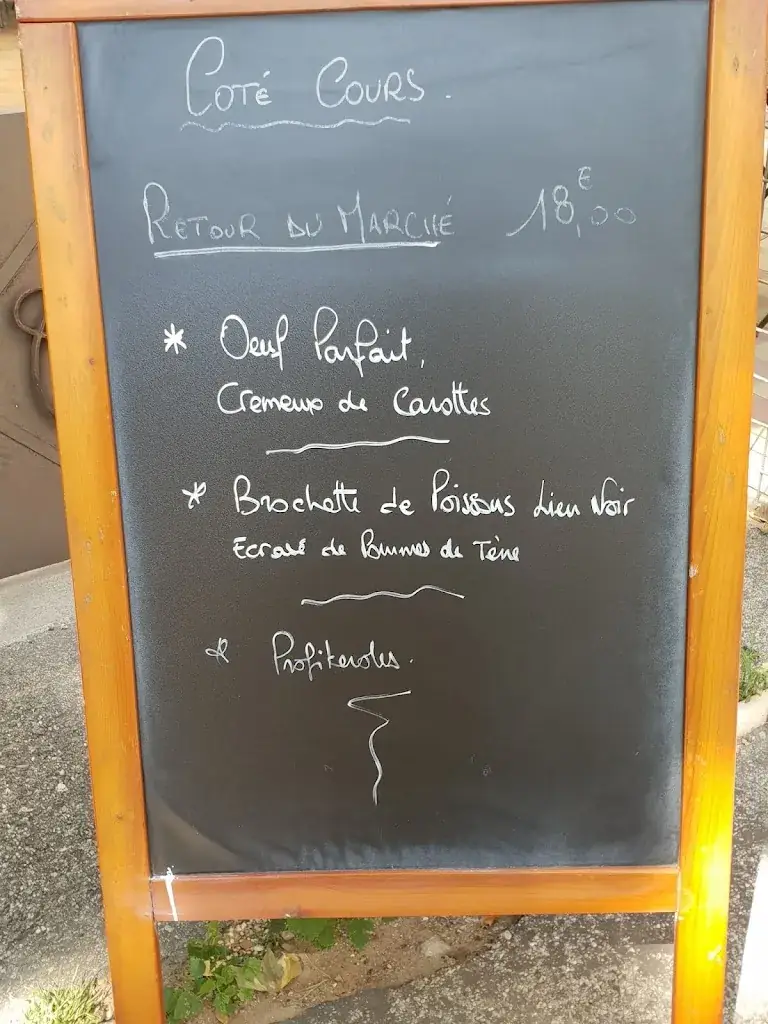 COTÉ COURS.
RETOUR DU MARCHÉ 18,00 €
* Oeuf Parfait,
Cremeux de Carottes
* Brochette de Poissons Lieu Noir
Ecrasé de Pommes de Terre
* Profiteroles.